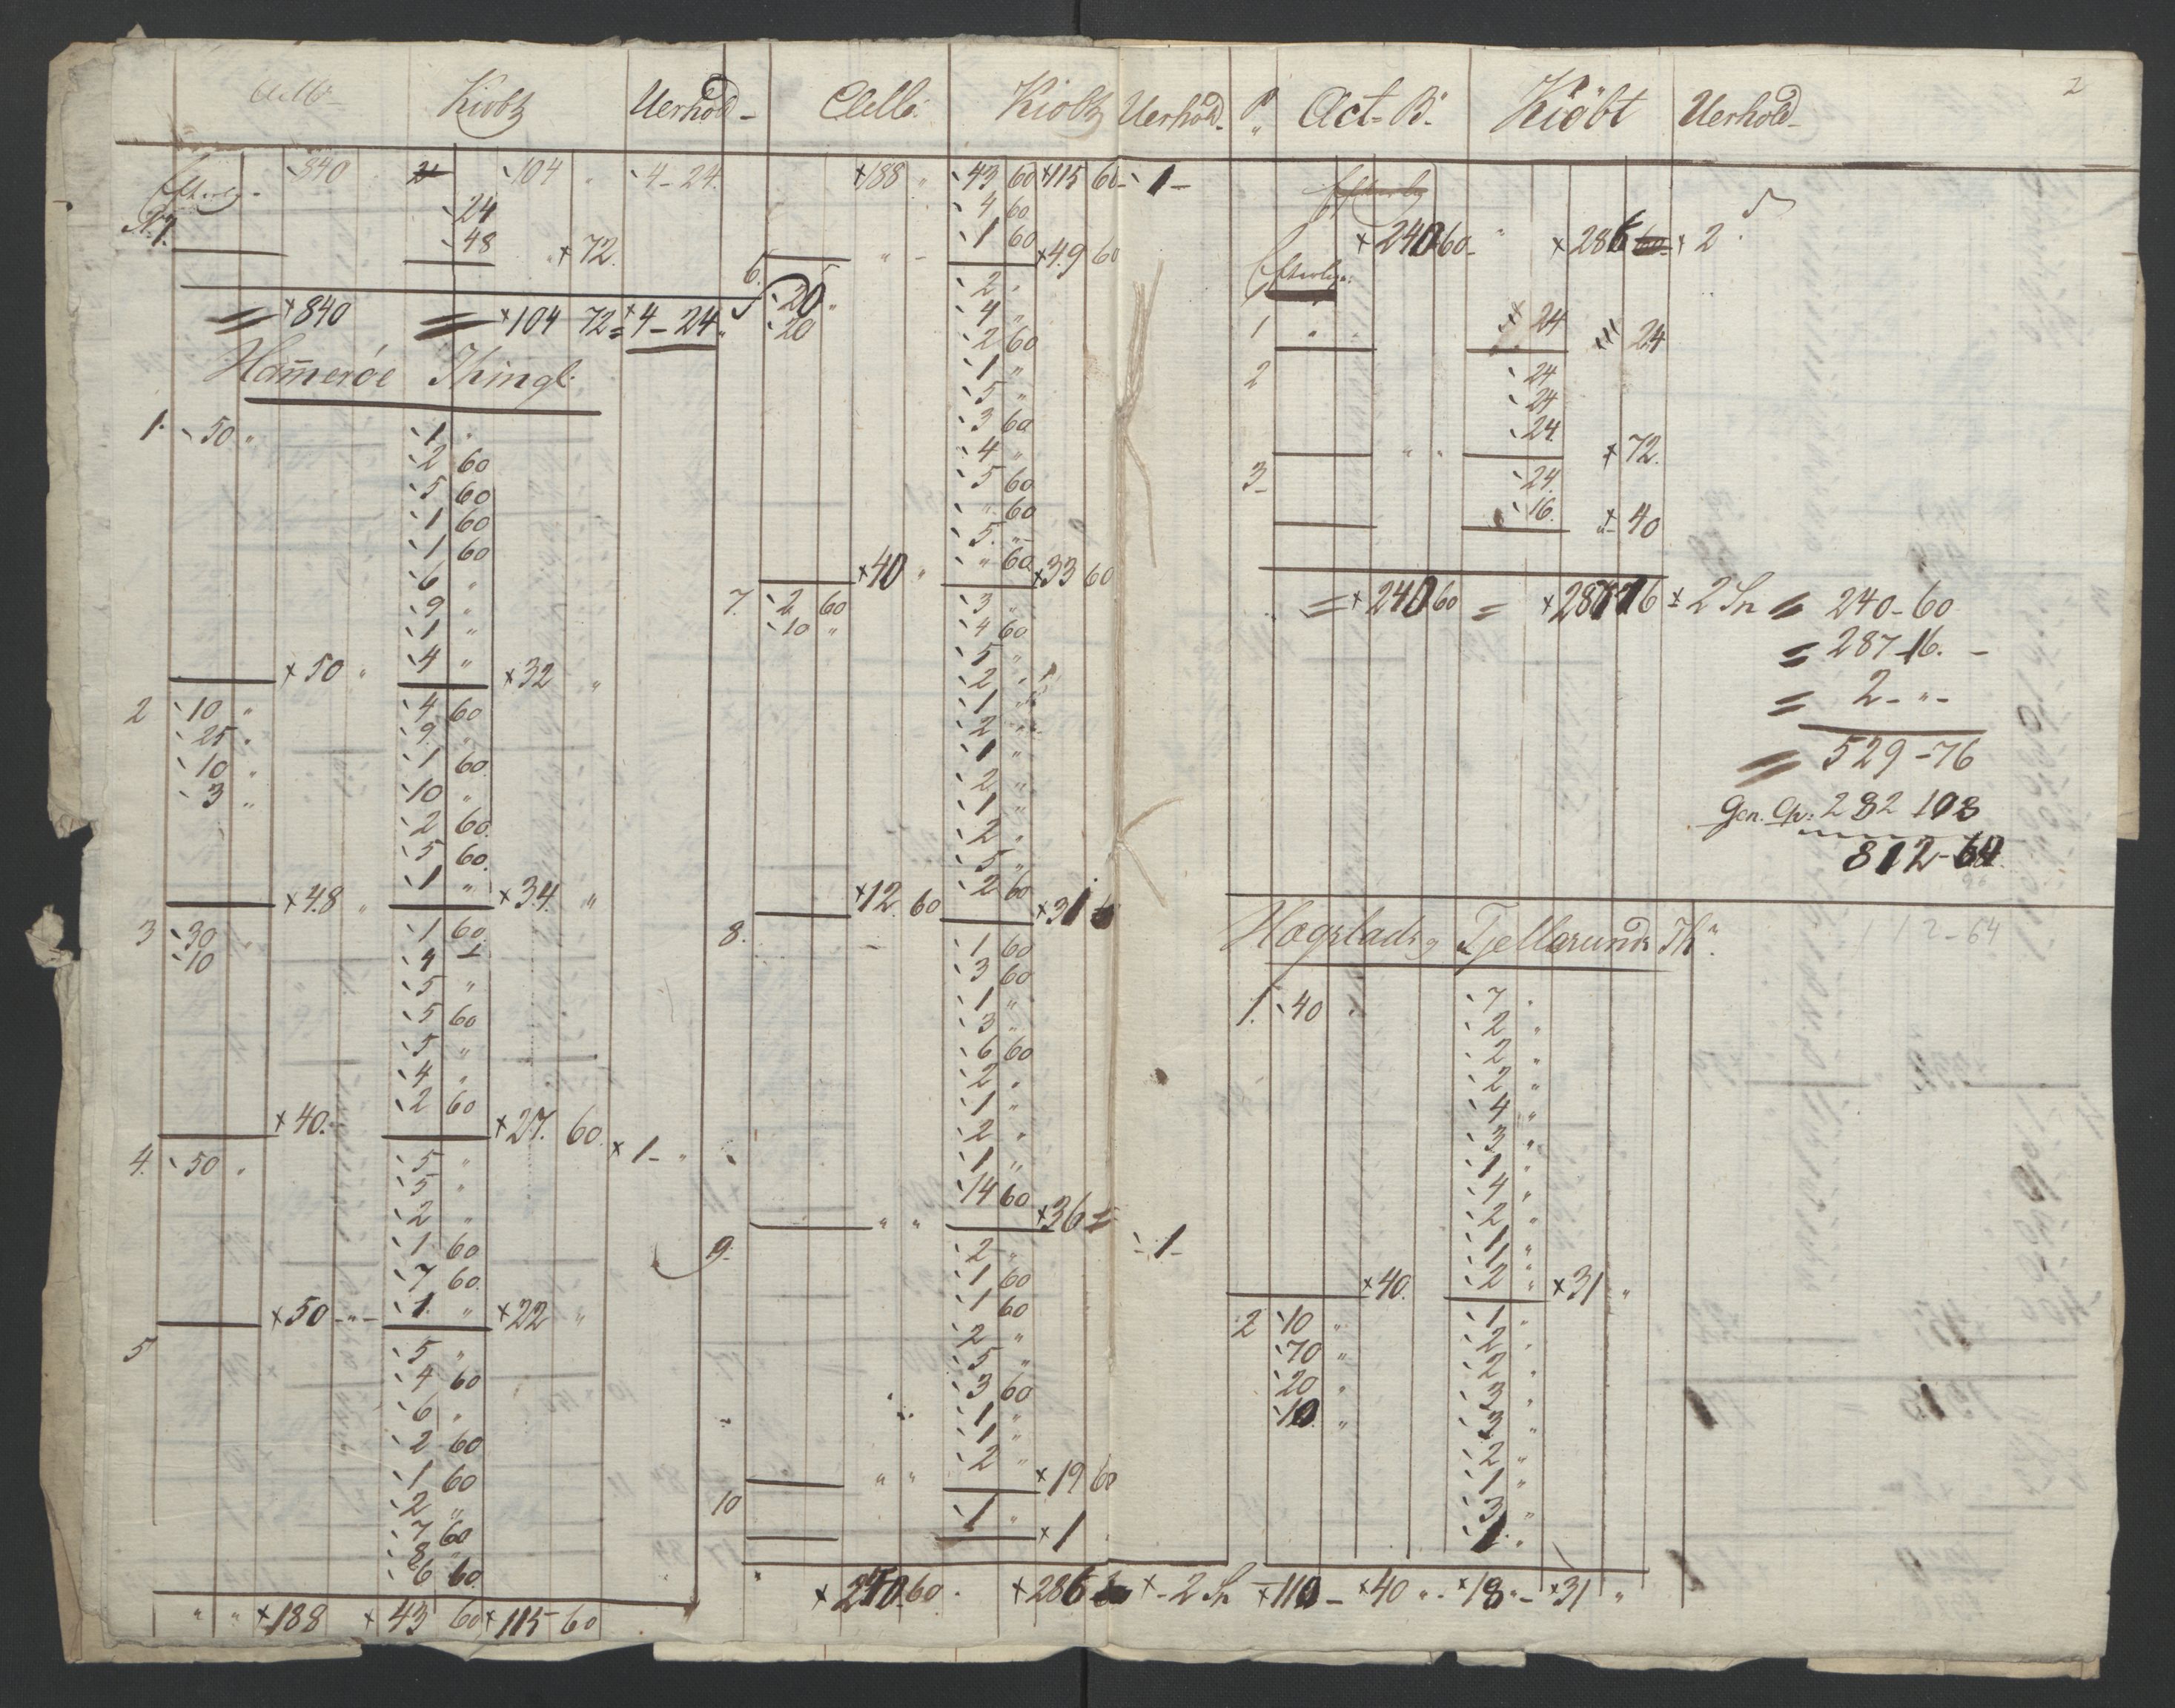 Kiöbt Uerhold-
840 " 24 104 " 4-24.
Efterlig-
N.1. 24
48 +72.
= +840 = +104 72 = +4-24.
Hamerøe Thingl:
1. 50 " 1 "
2 60
5 60
1 60
1 60
6 "
9 "
1 "
+50 " 4 " +32 "
2 10 " 4 60
25 " 9 "
10 " 1 60
3 " 10 "
2 60
5 60
+48 " 1 " +34 "
3 30 1 60
10 4 -
5 "
5 60
5 "
4 "
+40. 2 60 +27. 60 +1- "
4. 50 " 5 "
5 "
2 "
1 60
7 60
+50 - " - 1 " +22 "
5 5 "
4 60
6 "
2 60
1 60
2 "
7 60
8 "
6 60
" " +188 +43 60 +115-60
Kiobt Uerhold-
+188 " 43 60 +115 60 -1-
4 60
" - 1 60 +49 60
6. 20 " 2 "
20 4 "
2 60
1 "
5 "
3 60
4 "
5 60
" 60
5 "
+40 " " 60 +33 60
7. 2 60 3 "
10 " 4 60
5 "
2 "
1 "
2 "
1 "
2 "
1 "
2 "
5 "
+12. 60 2 60 +31
8. 1 60
3 60
1 "
3 "
6 60
2 "
1 "
2 "
1 "
" " 14 60 +36 = -1-
9. 2 "
1 60
1 60
2 "
5 "
3 60
1 "
1 "
" " 2 " +19 60
10 1 "
+1
" +240.60. +286 +-2 Sn
2
P" Act-B- Kiöbt Uerhold-
Efterlig
+240 60- " +286 60- +2
Efterlig:
1 " +24 24
2 24
24
" " 24 +72.
3- 24.
16. +40
= +240 60 = +287 16 +2 Sn = 240-60
= 287-16. -
= 2-"-
= 529-76
Gen. 282 108
812-64
12-64
Hogslads Tjellesunds Th"
1. 40 7 "
2 "
2 "
2 "
4 "
3 "
1 "
4 "
2 "
1 "
+40. 2 " +31 "
2 10 " 1 "
70 " 2 "
20 " 2 "
10 " 3 "
3 "
2 "
1 "
3 "
1 "
+110- +40 "- +18 "- +31 "